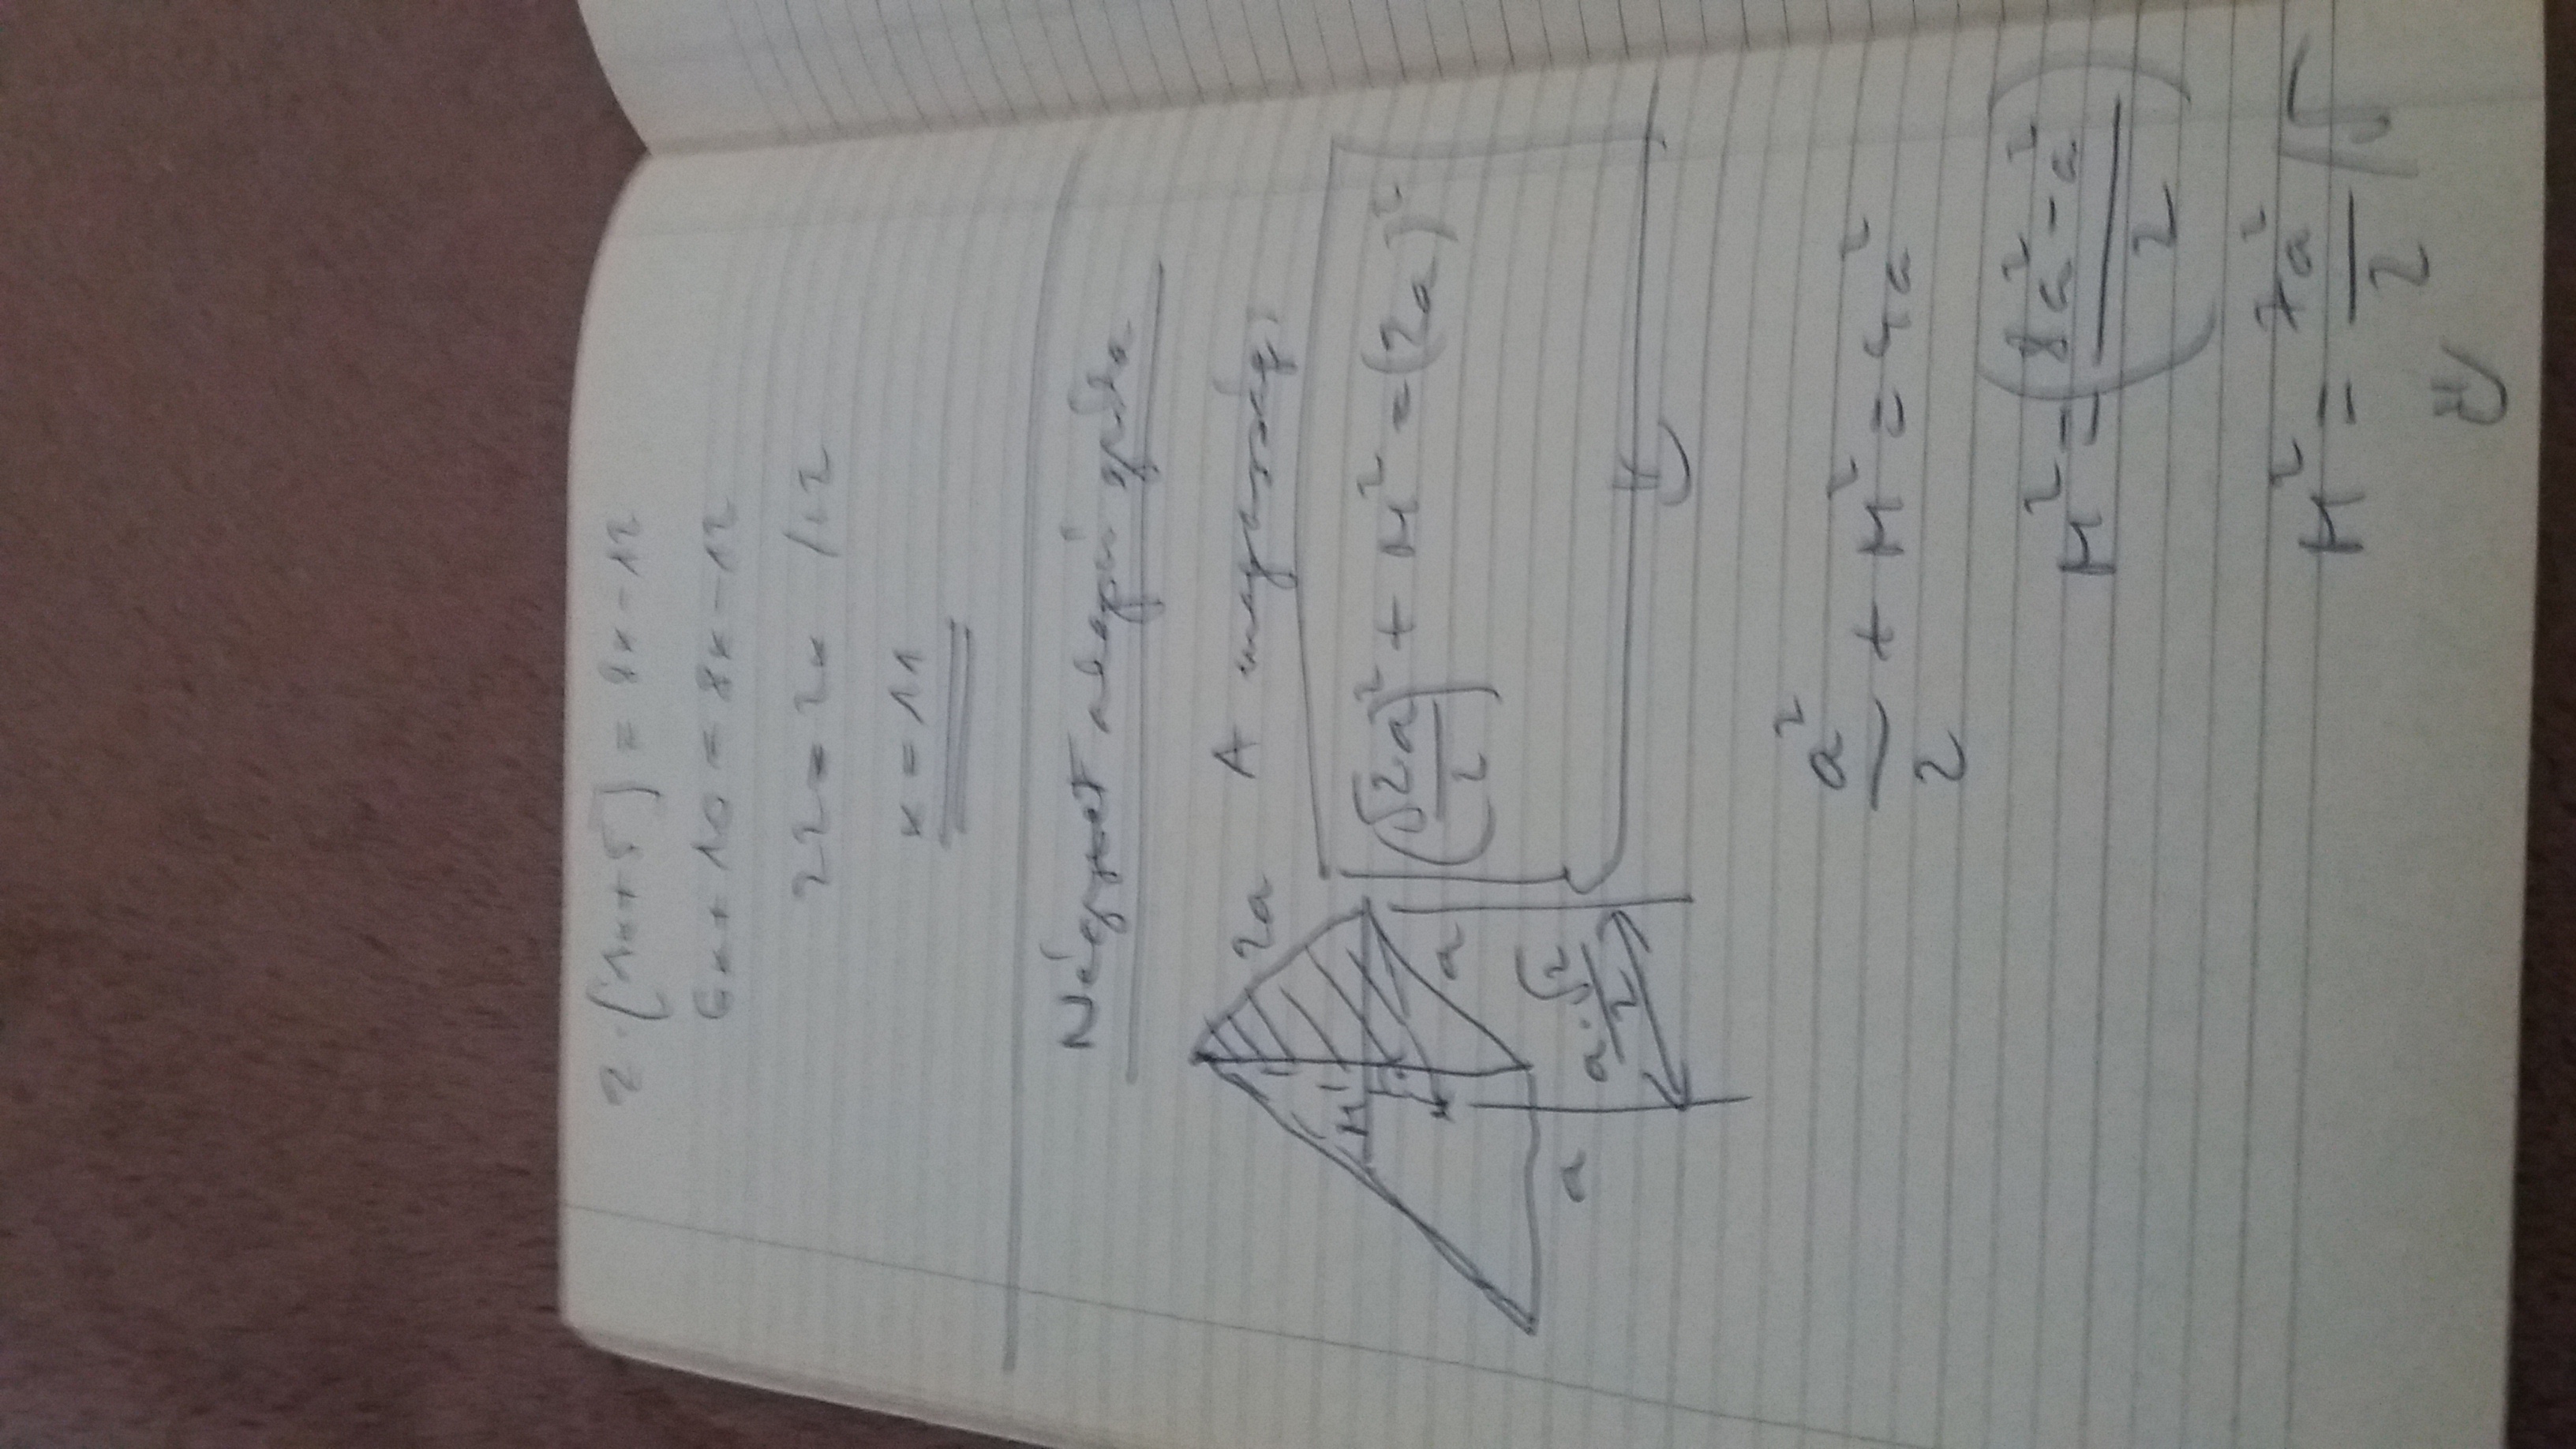 2·(3x+5) = 8x-12
6x+10 = 8x-12
22 = 2x /:2
x = 11
Négyzet alapú gúla
2a A magasság:
M
a
a·√2/2
a
(√2a/2)² + M² = (2a)²
a²/2 + M² = 4a²
M² = (8a²-a²/2)
M² = 7a²/2 /√